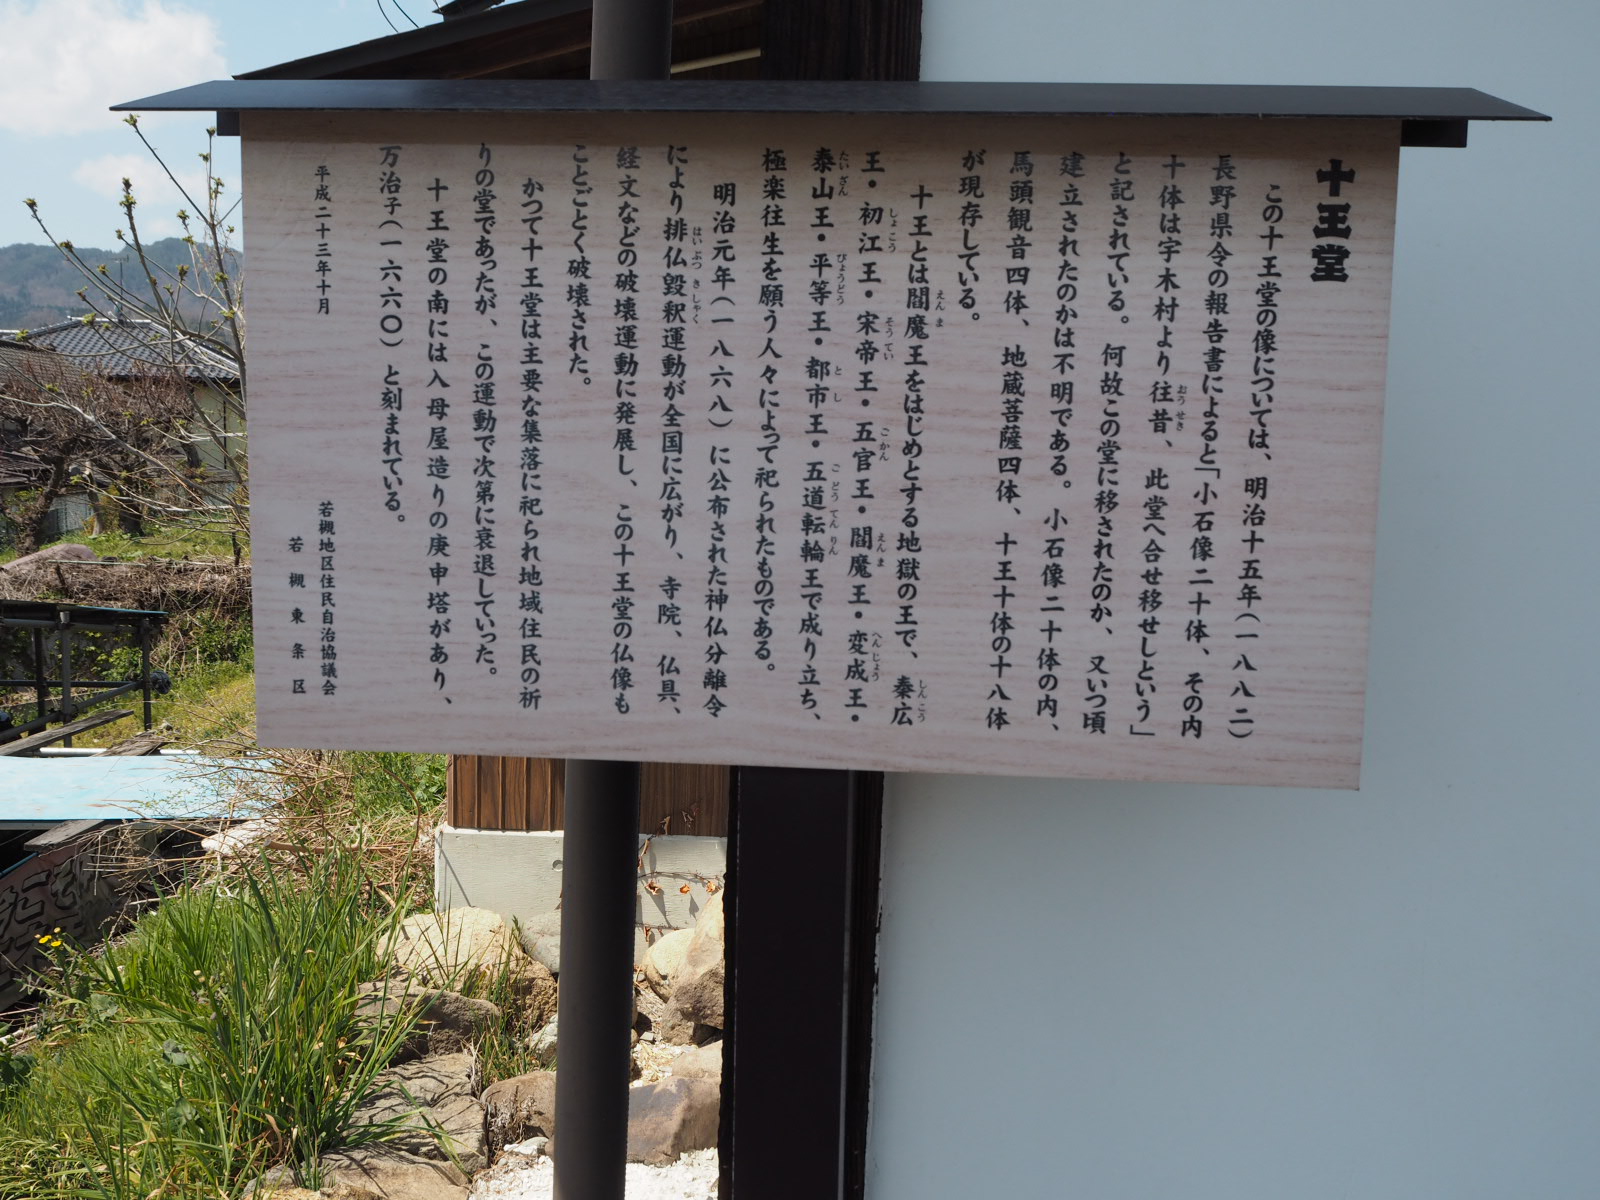 十王堂
この十王堂の像については、明治十五年(一八八二)
長野県令の報告書によると「小石像二十体、その内
十体は宇木村より往昔、此堂へ合せ移せしという」
と記されている。何故この堂に移されたのか、又いつ頃
建立されたのかは不明である。小石像二十体の内、
馬頭観音四体、地蔵菩薩四体、十王十体の十八体
が現存している。
十王とは閻魔王をはじめとする地獄の王で、秦広
王・初江王・宋帝王・五官王・閻魔王・変成王・
泰山王・平等王・都市王・五道転輪王で成り立ち、
極楽往生を願う人々によって祀られたものである。
明治元年(一八六八)に公布された神仏分離令
により排仏毀釈運動が全国に広がり、寺院、仏具、
経文などの破壊運動に発展し、この十王堂の仏像も
ことごとく破壊された。
かつて十王堂は主要な集落に祀られ地域住民の祈
りの堂であったが、この運動で次第に衰退していった。
十王堂の南には入母屋造りの庚申塔があり、
万治子(一六六〇)と刻まれている。
平成二十三年十月
若槻地区住民自治協議会
若槻東条区